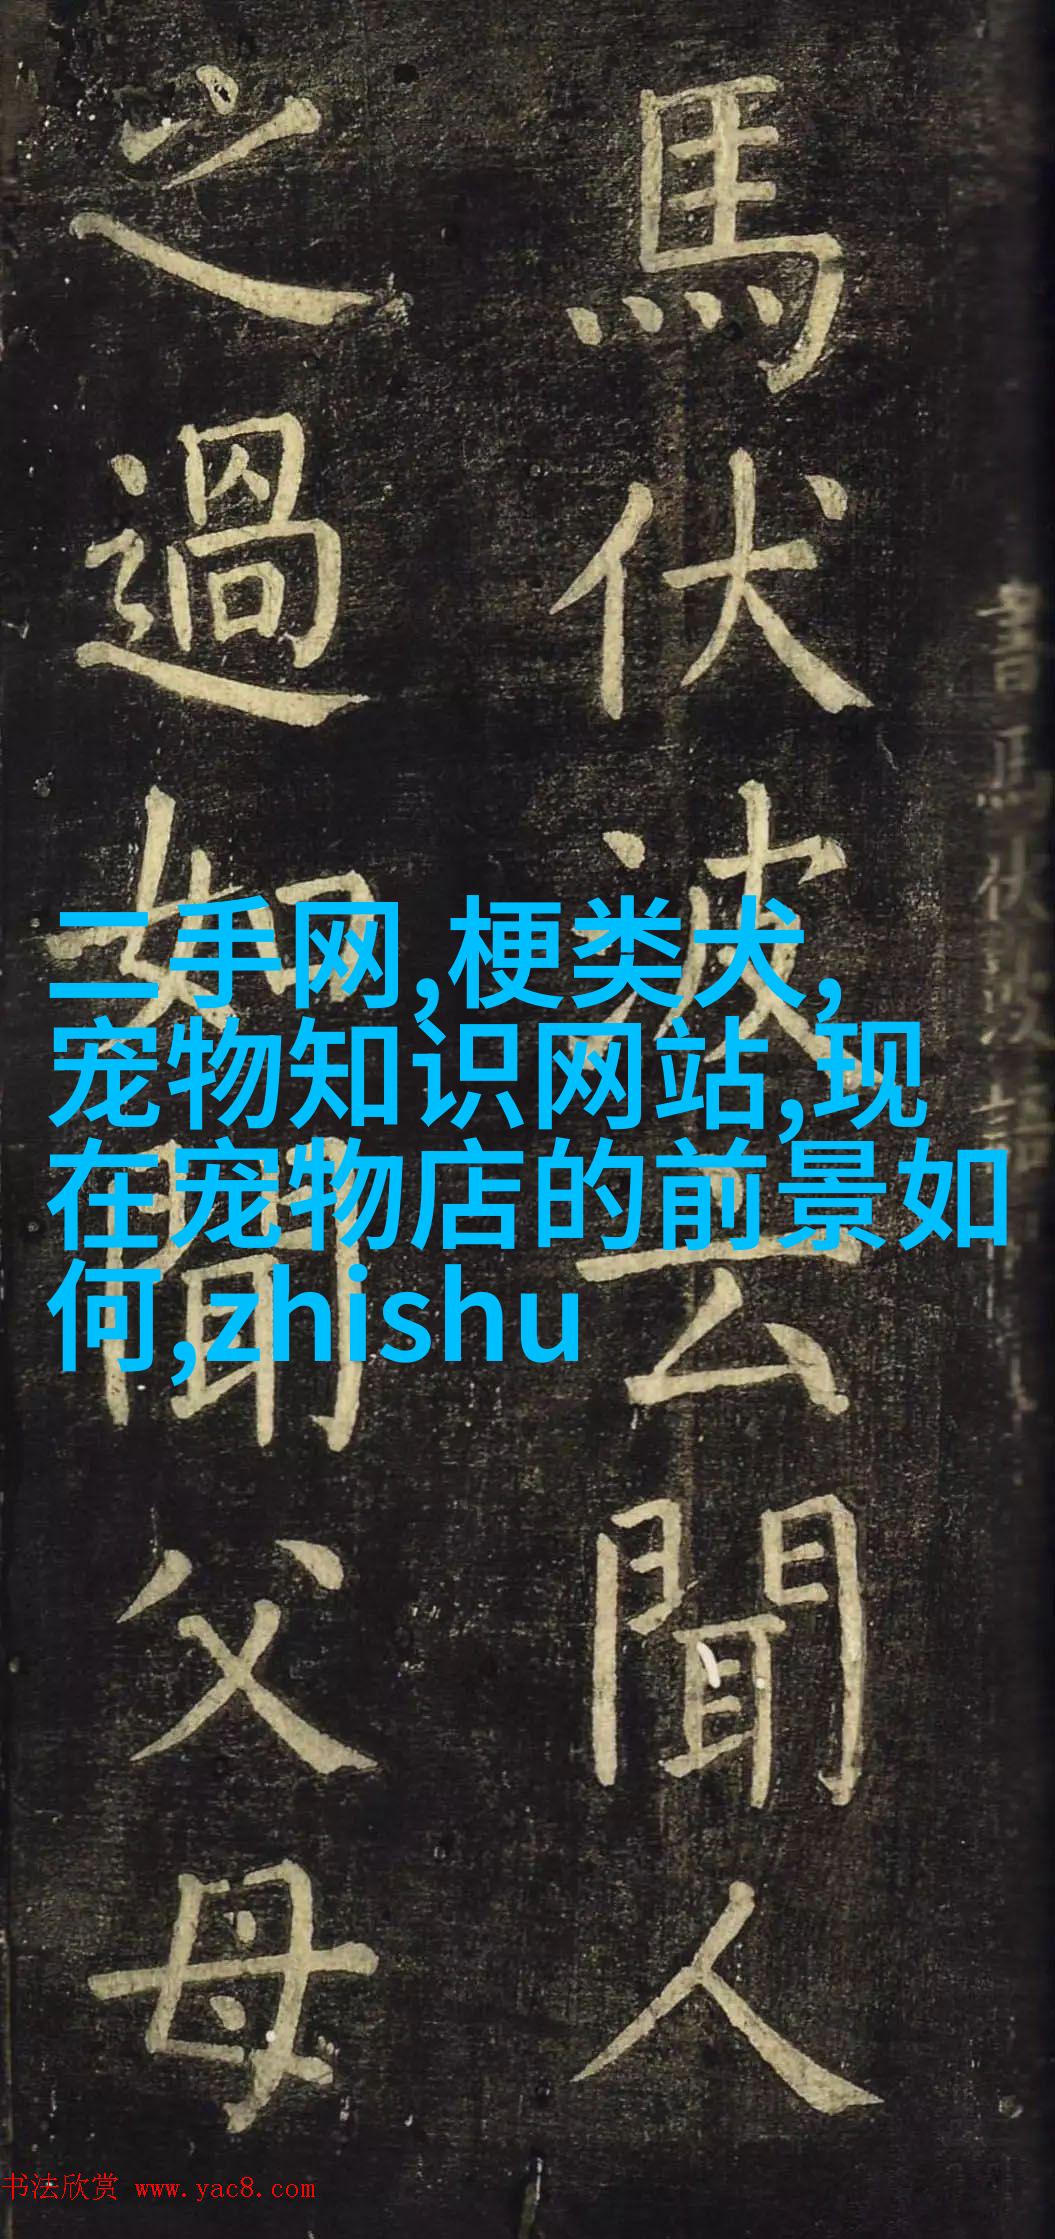 馬伏波云聞人
之過如聞父母
二手网,梗类犬,
宠物知识网站,现
在宠物店的前景如
何,zhishu
书法欣赏 www.yac8.com